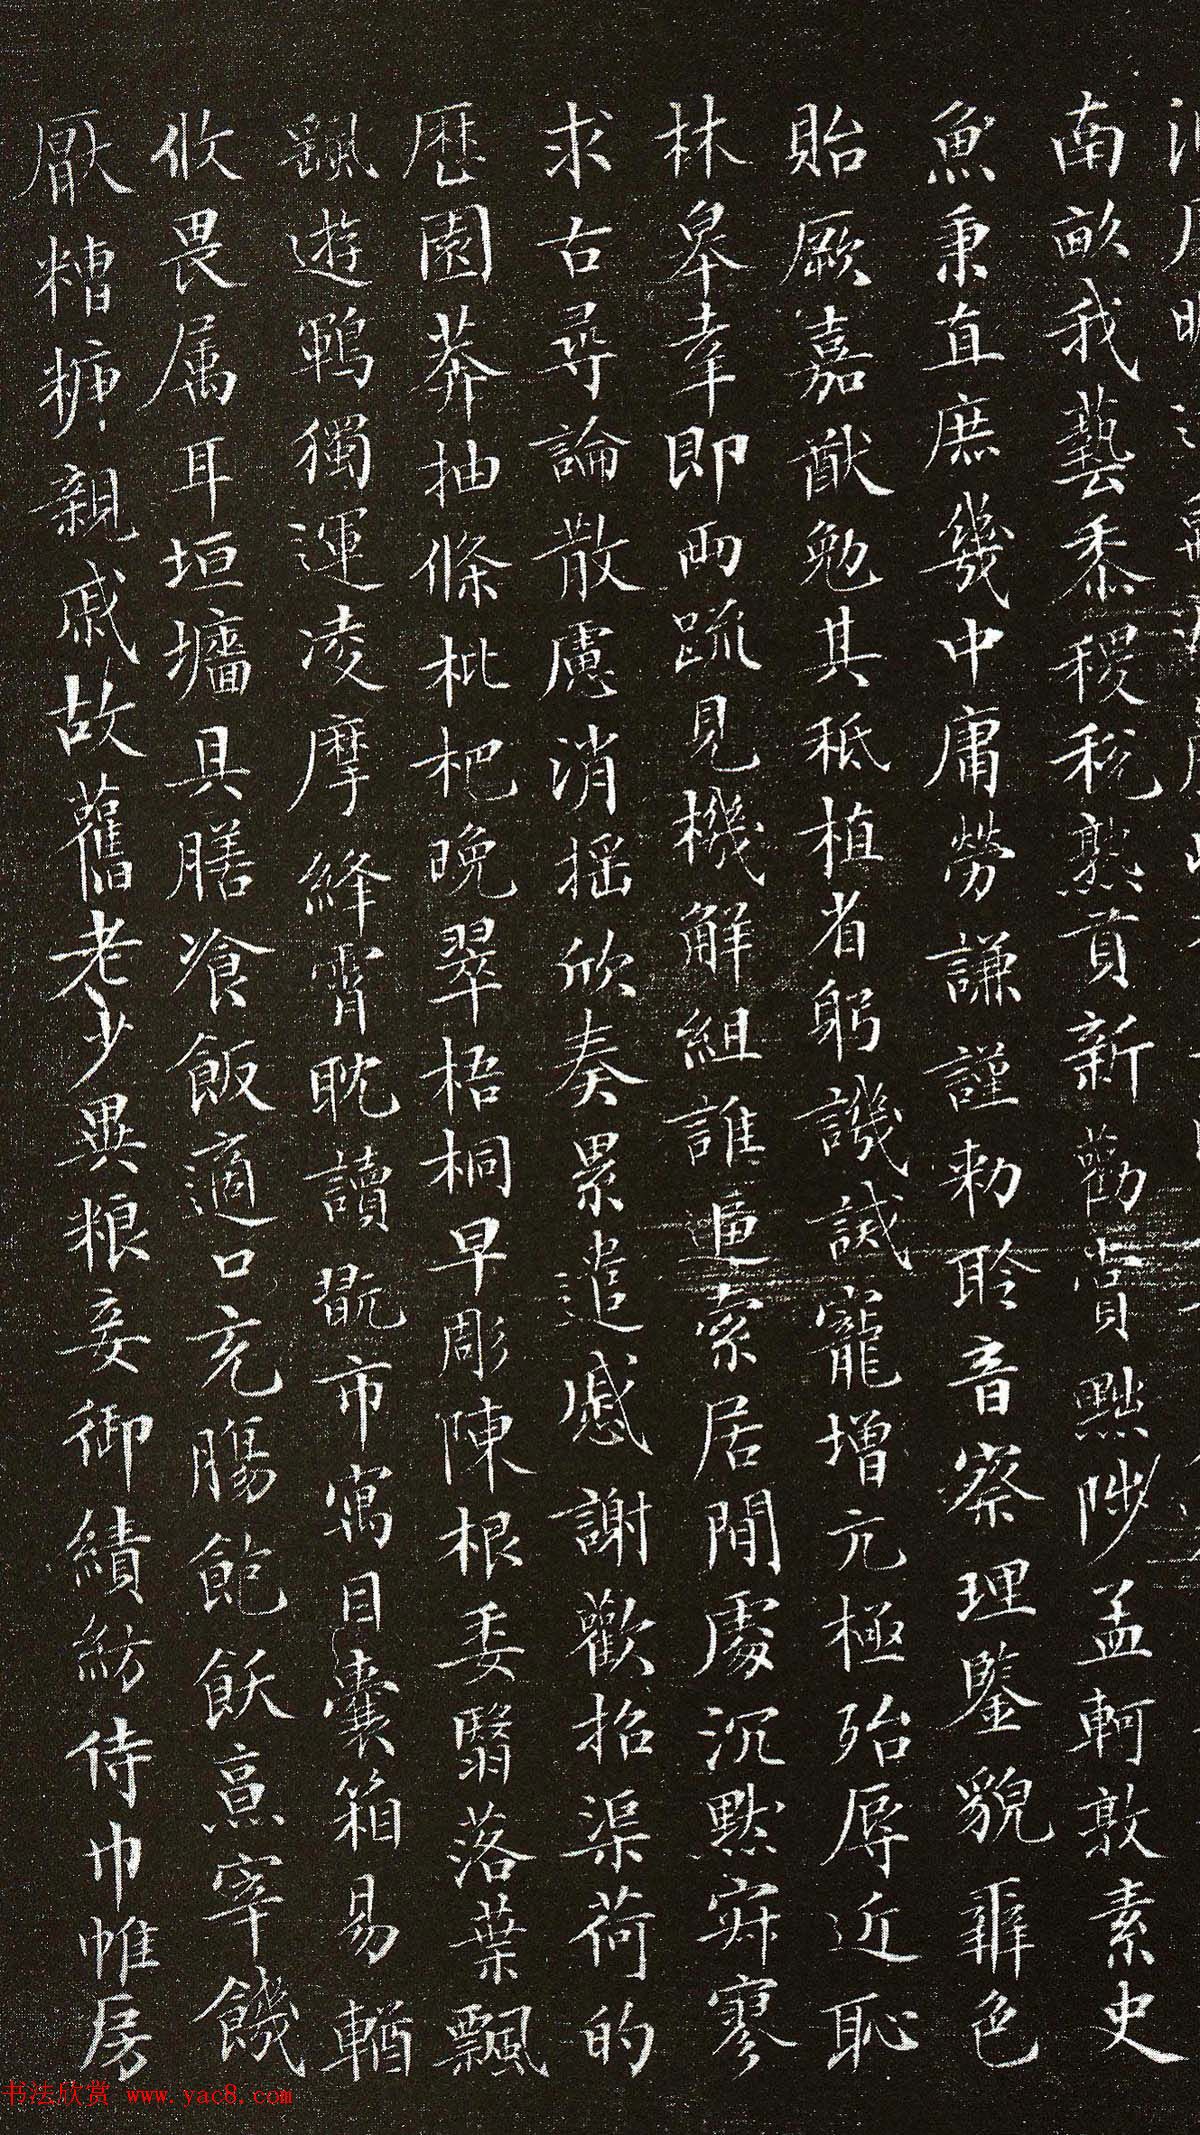 南畝我藝黍稷稅熟貢新勸賞黜陟孟軻敦素史
魚秉直庶幾中庸勞謙謹勅聆音察理鑒貌辯色
貽厥嘉猷勉其祗植省躬譏誡寵增亢極殆辱近恥
林皋幸即兩疏見機解組誰逼索居閒處沉默寂寥
求古尋論散慮消搖欣奏累遣慼謝歡招渠荷的
歷園莽抽條枇杷晚翠梧桐早彫陳根委翳落葉飄
颻遊鵾獨運凌摩絳霄耽讀翫市寓目囊箱易輶
攸畏属耳垣墻具膳飡飯適口充腸飽飫烹宰饑
厭糟糠親戚故舊老少異粮妾御績紡侍巾帷房
书法欣赏 www.yac8.com